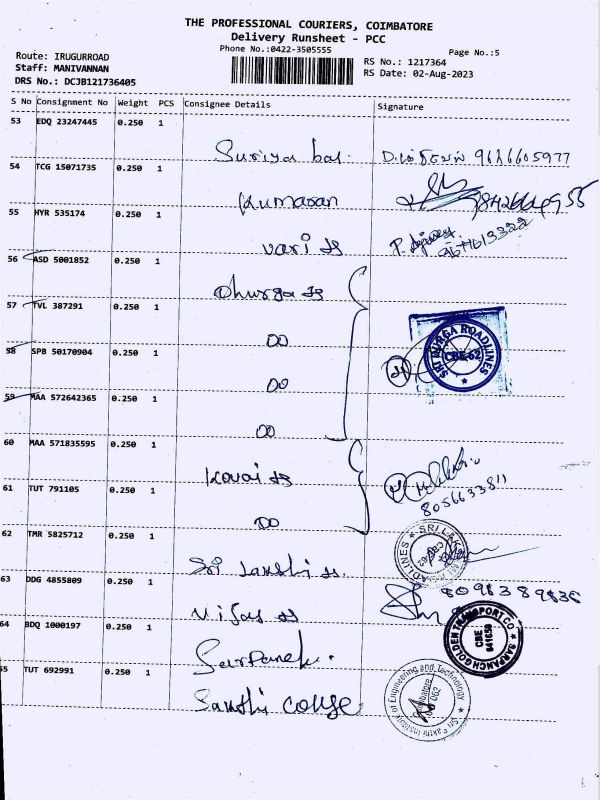 THE PROFESSIONAL COURIERS, COIMBATORE
Delivery Runsheet - PCC
Phone No.:0422-3505555
Page No.:5
Route: IRUGURROAD
Staff: MANIVANNAN
DRS No.: DCJB121736405
RS No.: 1217364
RS Date: 02-Aug-2023
S No Consignment No Weight PCS Consignee Details Signature
53 EDQ 23247445 0.250 1
Suriya 9626605977
54 TCG 15071735 0.250 1
Kumaran
55 HYR 535174 0.250 1
P. 9677613322
56 ASD 5001852 0.250 1
Dhurga
57 TVL 387291 0.250 1
DO
SRI DURGA ROADLINES
CBE-62
58 SPB 50170904 0.250 1
DO
59 MAA 572642365 0.250 1
DO
60 MAA 571835595 0.250 1
Kovai
8056633811
61 TUT 791105 0.250 1
DO
62 TMR 5825712 0.250 1
Sri
63 DDG 4855809 0.250 1
8098389836
64 BDQ 1000197 0.250 1
SARPANCH GOLDEN TRANSPORT CO
CBE
641659
65 TUT 692991 0.250 1
Sri Sakthi Institute of Engineering and Technology
Coimbatore